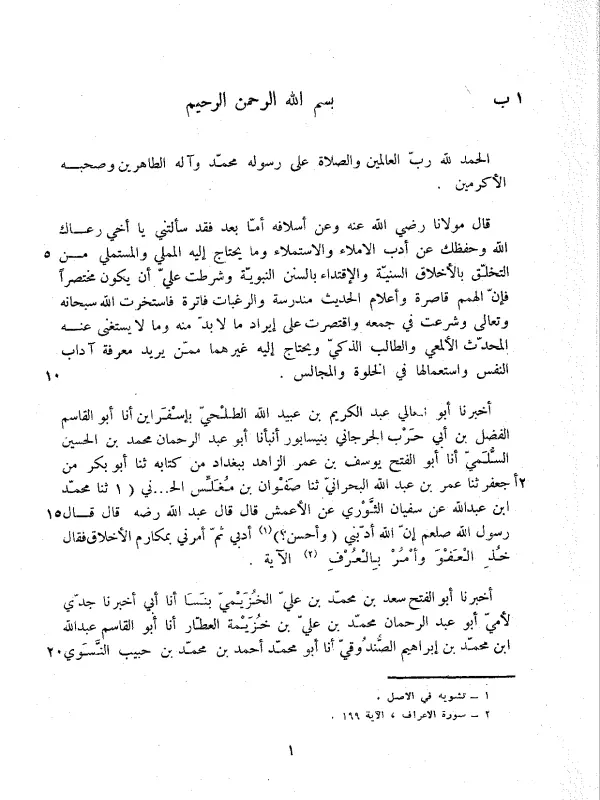 ١ ب بسم الله الرحمن الرحيم
الحمد لله ربّ العالمين والصلاة على رسوله محمّد وآله الطاهرين وصحبه
الأكرمين .
قال مولانا رضي الله عنه وعن أسلافه أمّا بعد فقد سألتني يا أخي رعاك
الله وحفظك عن أدب الاملاء والاستملاء وما يحتاج إليه المملي والمستملي من ٥
التخلّق بالأخلاق السنيّة والإقتداء بالسنن النبويّة وشرطت عليّ أن يكون مختصراً
فإنّ الهمم قاصرة وأعلام الحديث مندرسة والرغبات فاترة فاستخرت الله سبحانه
وتعالى وشرعت في جمعه واقتصرت على إيراد ما لا بدّ منه وما لا يستغنى عنه
المحدّث الألمعي والطالب الذكيّ ويحتاج إليه غيرهما ممّن يريد معرفة آداب
النفس واستعمالها في الخلوة والمجالس . ١٠
أخبرنا أبو عبد الكريم بن عبيد الله الطلْحيّ بإسْفَراين أنا أبو القاسم
الفضل بن أبي حَرْب الجرجاني بنيسابور أنبأنا أبو عبد الرحمان محمد بن الحسين
السُّلَميّ أنا أبو الفتح يوسف بن عمر الزاهد ببغداد من كتابه ثنا أبو بكر من
٢أ جعفر ثنا عمر بن عبد الله البحرانيّ ثنا صَفْوان بن مُغَلِّس الحـ...ني ( ١ ثنا محمّد
ابن عبدالله عن سفيان الثَّوْري عن الأعمش قال قال عبد الله رضه قال قال ١٥
رسول الله صلعم إنّ الله أدّبني ( وأحسن؟)(١) أدبي ثمّ أمرني بمكارم الأخلاق فقال
خُذِ الْعَفْوَ وأْمُرْ بِالْعُرْفِ (٢) الآية .
أخبرنا أبو الفتح سعد بن محمّد بن عليّ الخُزَيْمْيّ بنَسَا أنا أبي أخبرنا جدّي
لأميّ أبو عبد الرحمان محمّد بن عليّ بن خُزَيْمة العطّار أنا أبو القاسم عبدالله
ابن محمّد بن إبراهيم الصُّنْدُوقيّ أنا أبو محمّد أحمد بن محمّد بن حبيب النَّسَوي ٢٠
١ – تشويه في الاصل .
٢ – سورة الاعراف ، الآية ١٩٩ .
١